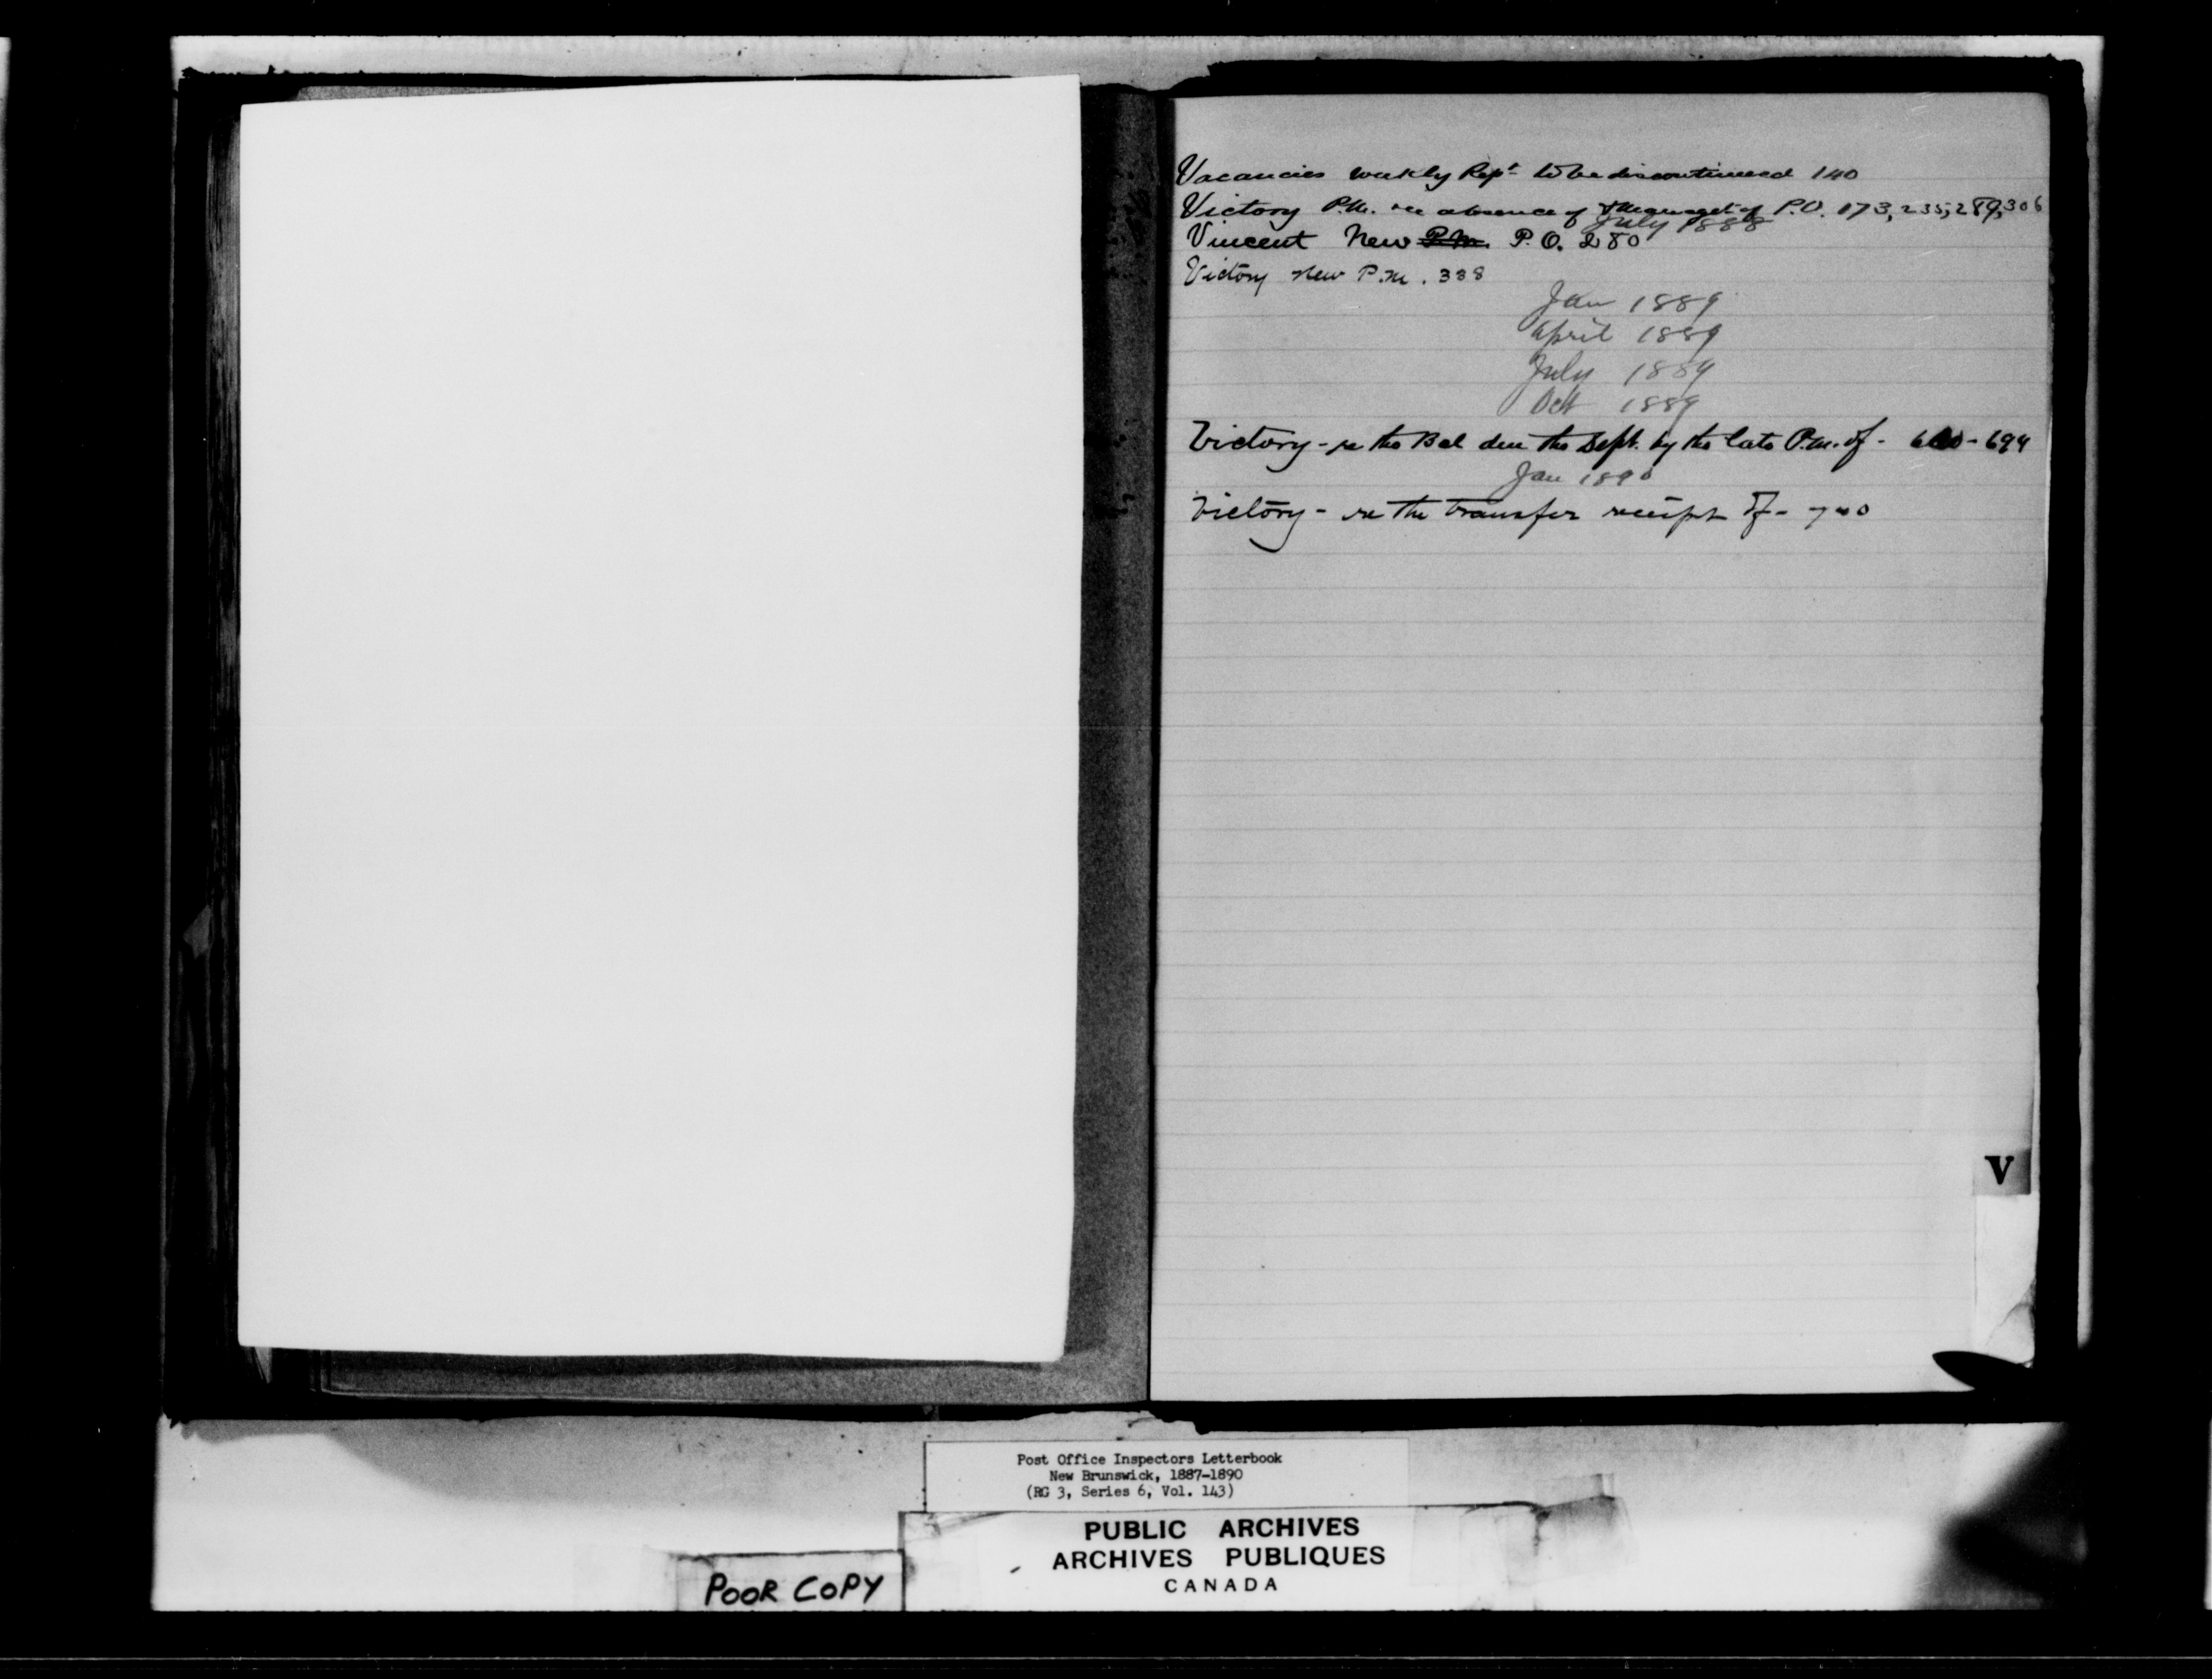 Vacancies weekly Rept to be discontinued 140
Victory P.M. re absence of & Managet of P.O. 173, 235, 289, 306
July 1888
Vincent New P.M. P.O. 280
Victory new P.M. 338
Jan 1889
April 1889
July 1889
Oct 1889
Victory - re the Bal due the Dept. by the late P.M. of - 694
Jan 1890
Victory - re the transfer receipt of -
V
Post Office Inspectors Letterbook
New Brunswick, 1887-1890
(RG 3, Series 6, Vol. 143)
PUBLIC ARCHIVES
ARCHIVES PUBLIQUES
CANADA
POOR COPY